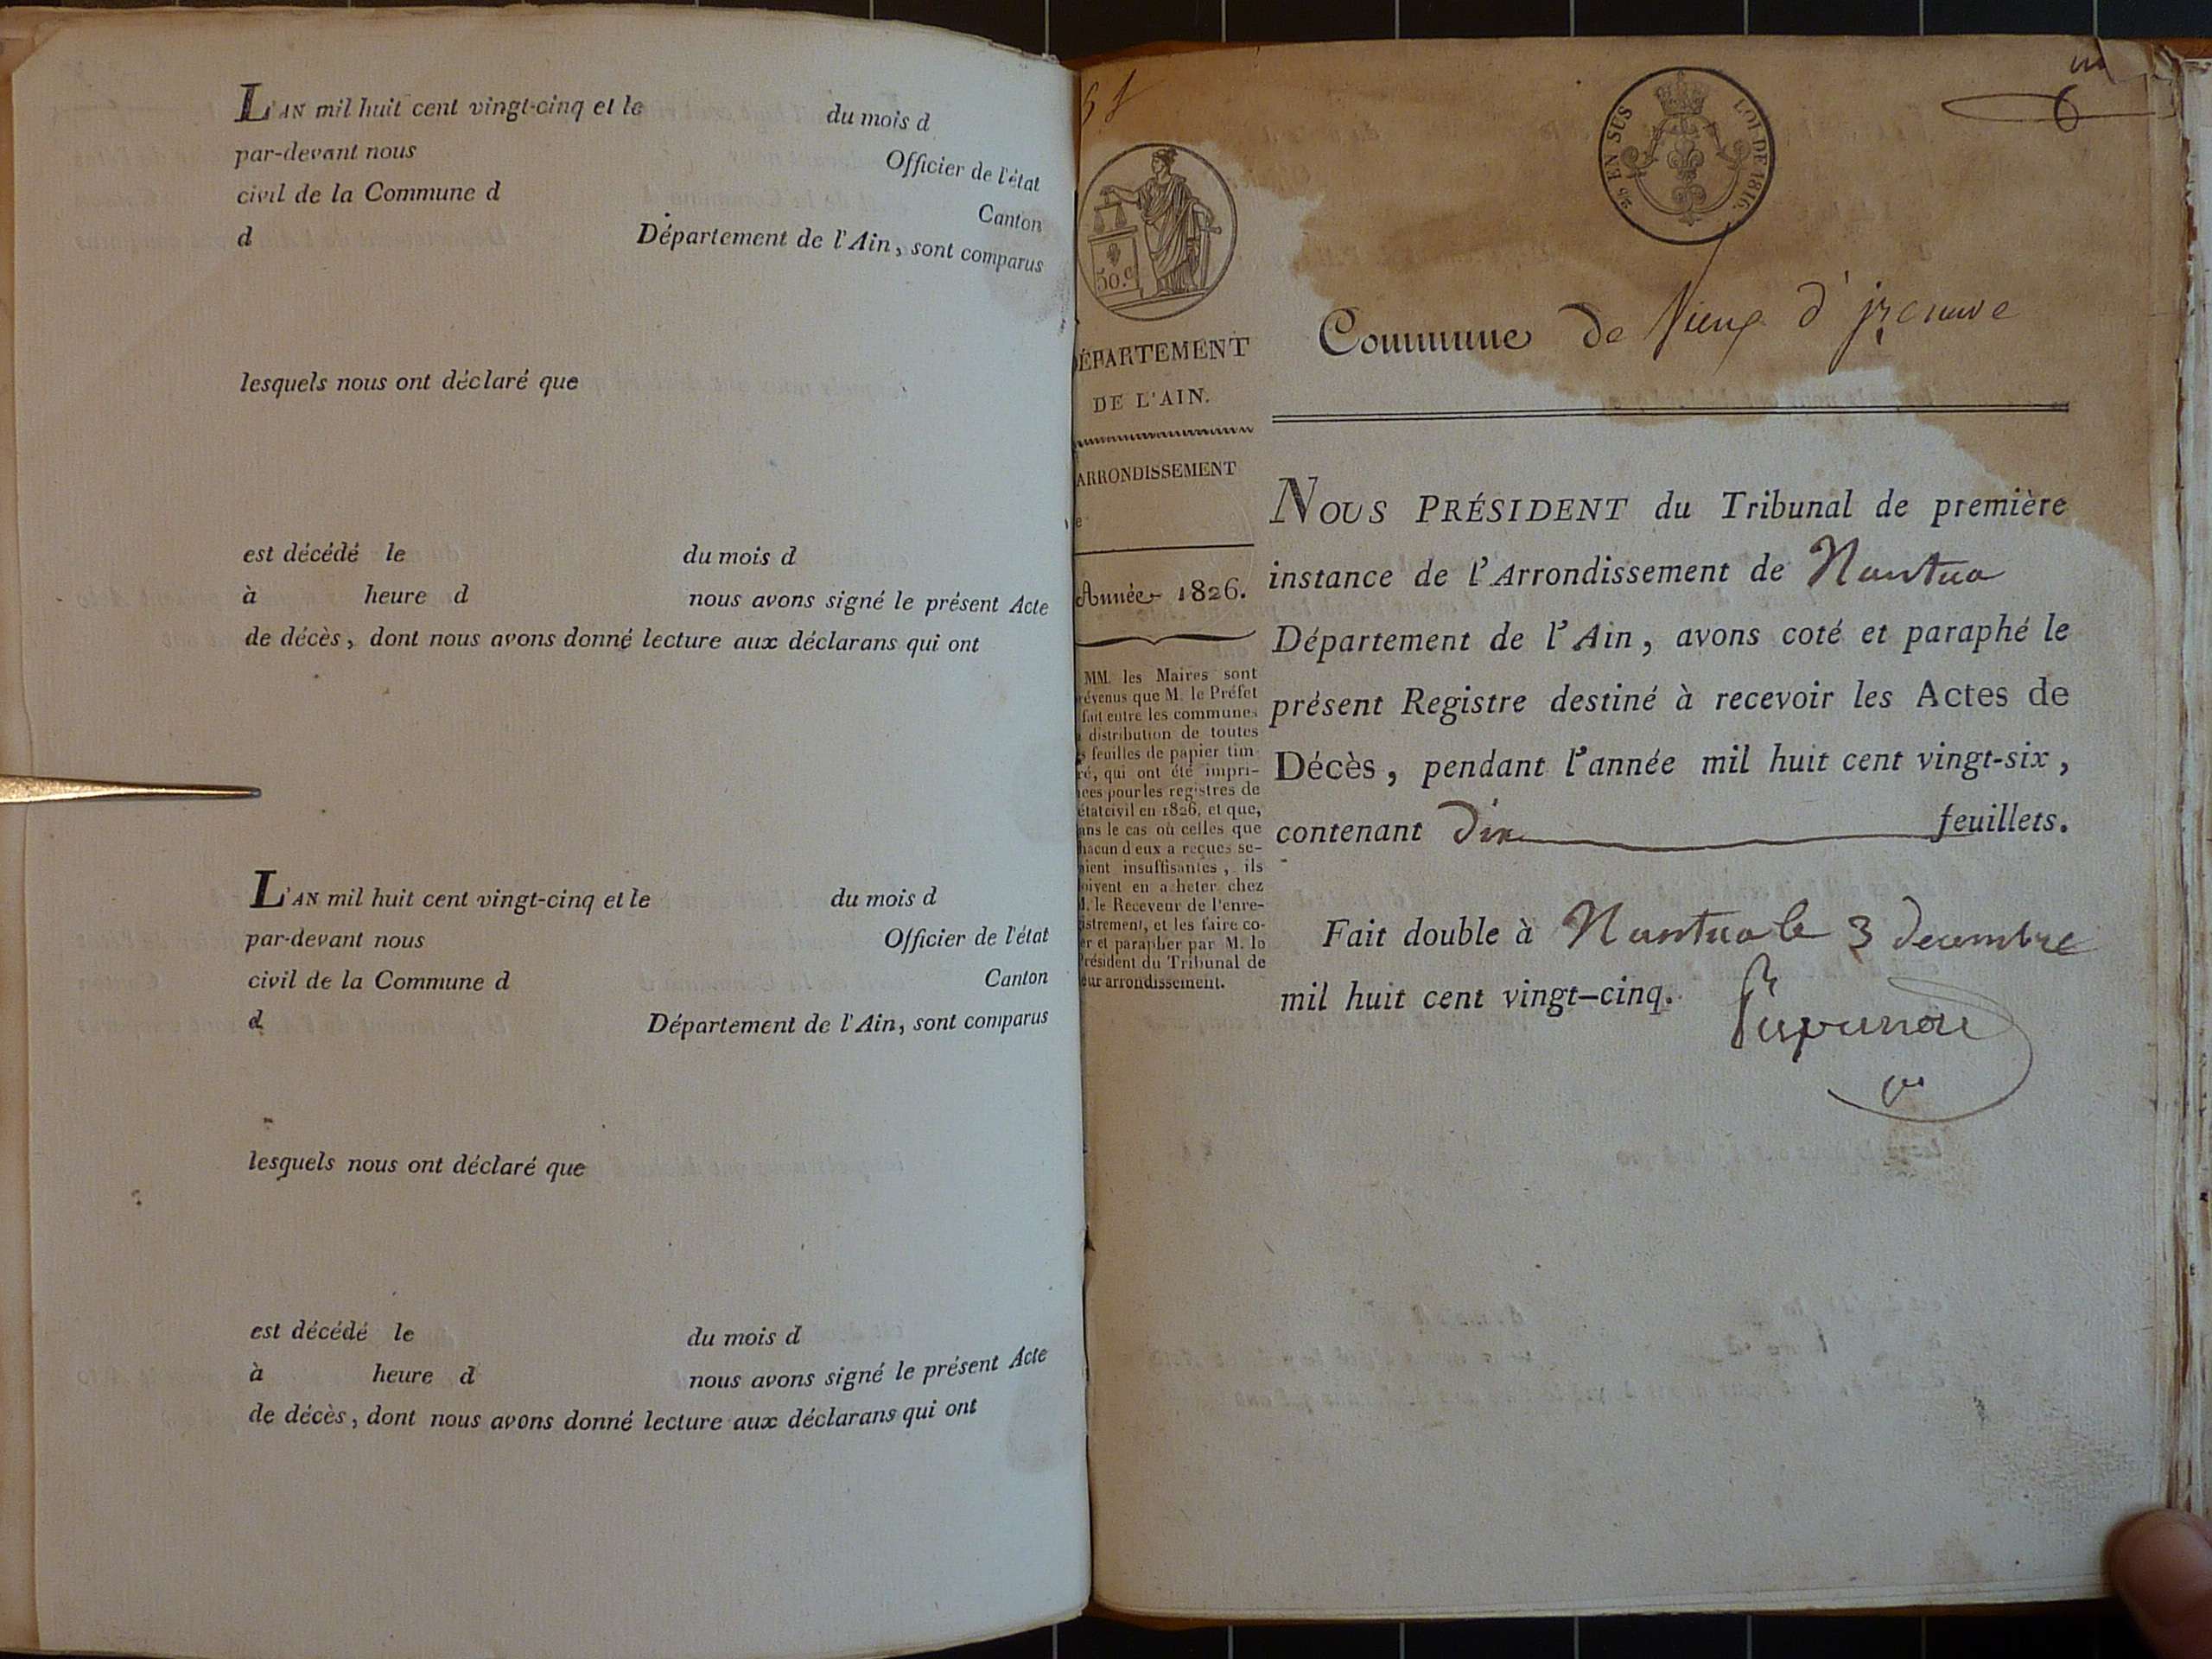 L'AN mil huit cent vingt-cinq et le du mois d
par-devant nous Officier de l'état
civil de la Commune d Canton
d Département de l'Ain, sont comparus
lesquels nous ont déclaré que
est décédé le du mois d
à heure d nous avons signé le présent Acte
de décès, dont nous avons donné lecture aux déclarans qui ont
L'AN mil huit cent vingt-cinq et le du mois d
par-devant nous Officier de l'état
civil de la Commune d Canton
d Département de l'Ain, sont comparus
lesquels nous ont déclaré que
est décédé le du mois d
à heure d nous avons signé le présent Acte
de décès, dont nous avons donné lecture aux déclarans qui ont
EN SUS LOI DE 1816.
50.c
DÉPARTEMENT
DE L'AIN.
ARRONDISSEMENT
Année 1826.
MM. les Maires sont
révenus que M. le Préfet
fait entre les communes
distribution de toutes
feuilles de papier tim-
ré, qui ont été impri-
ées pour les registres de
état civil en 1826, et que,
ans le cas où celles que
hacun d'eux a reçues se-
aient insuffisantes, ils
oivent en a heter chez
M. le Receveur de l'enre-
istrement, et les faire co-
er et parapher par M. le
Président du Tribunal de
eur arrondissement.
Commune de Vieux d'izenave
NOUS PRÉSIDENT du Tribunal de première
instance de l'Arrondissement de Nantua
Département de l'Ain, avons coté et paraphé le
présent Registre destiné à recevoir les Actes de
Décès, pendant l'année mil huit cent vingt-six,
contenant dix feuillets.
Fait double à Nantua le 3 decembre
mil huit cent vingt-cinq.